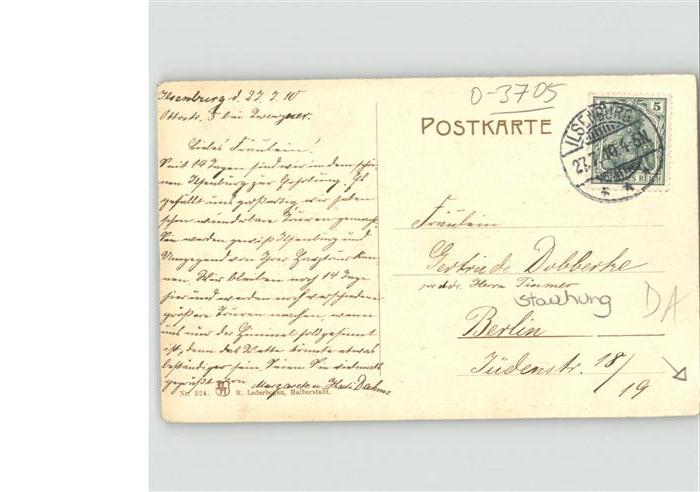 Ilsenburg d. 27.7.10
Ottostr. 8 bei
Liebes Fräulein!
Seit 14 Tagen sind wir in dem schö-
nen Ilsenburg zur Erholung. Es
gefällt uns großartig, wir haben
schon wunderbare Touren gemacht.
Sie werden gewiß Ilsenburg und
Umgegend von Ihrer Harztour ken-
nen. Wir bleiben noch 14 Tage
hier und werden noch verschiedene
größere Touren machen, wenn
uns nur der Himmel hold gesinnt
ist, denn das Wetter könnte etwas
beständiger sein. Seien Sie vielmals
gegrüßt von Margarete u. Dahms
No. 224. R. Lederbogen, Halberstadt.
0-3705
POSTKARTE
5
ILSENBURG
27.7.10. 4-5N.
Fräulein
Gertrude Dobberke
Herrn Timmer
Stauhung
DA
Berlin
Jüdenstr. 18/
19